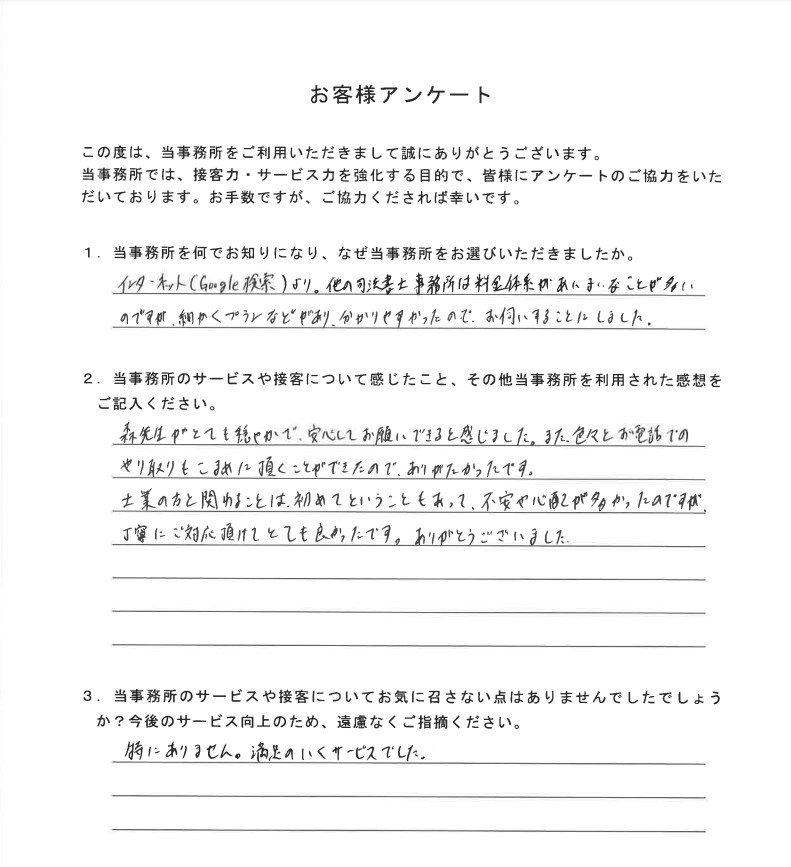 お客様アンケート
この度は、当事務所をご利用いただきまして誠にありがとうございます。
当事務所では、接客力・サービス力を強化する目的で、皆様にアンケートのご協力をいた
だいております。お手数ですが、ご協力くだされば幸いです。
１．当事務所を何でお知りになり、なぜ当事務所をお選びいただきましたか。
インターネット(Google検索)より。他の司法書士事務所は料金体系があいまいなことが多い
のですが、細かくプランなどがあり、分かりやすかったので、お伺いすることにしました。
２．当事務所のサービスや接客について感じたこと、その他当事務所を利用された感想を
ご記入ください。
森先生がとても穏やかで、安心してお願いできると感じました。また、色々とお電話での
やり取りもこまめに頂くことができたので、ありがたかったです。
士業の方と関わることは、初めてということもあって、不安や心配が多かったのですが、
丁寧にご対応頂けてとても良かったです。ありがとうございました。
３．当事務所のサービスや接客についてお気に召さない点はありませんでしたでしょう
か？今後のサービス向上のため、遠慮なくご指摘ください。
特にありません。満足のいくサービスでした。